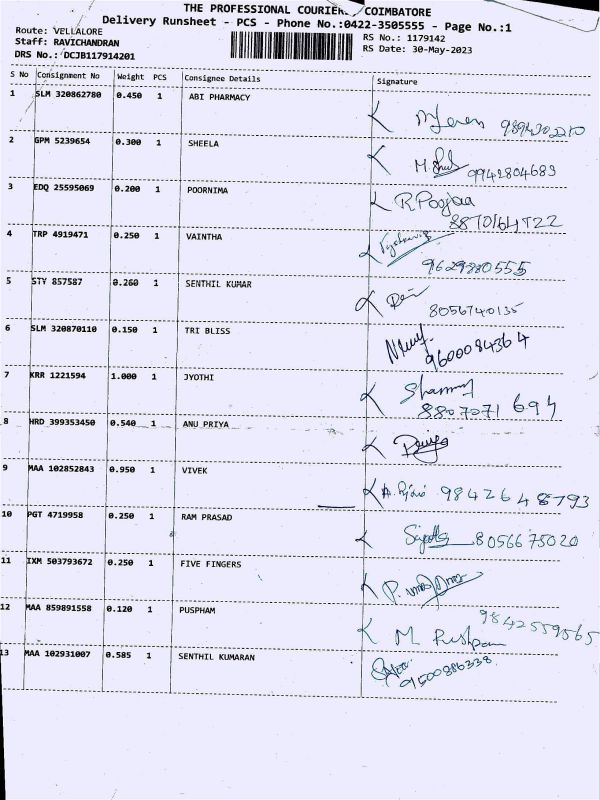 THE PROFESSIONAL COURIER, COIMBATORE
Delivery Runsheet - PCS - Phone No.:0422-3505555 - Page No.:1
Route: VELLALORE
Staff: RAVICHANDRAN
DRS No.: DCJB117914201
RS No.: 1179142
RS Date: 30-May-2023
S No Consignment No Weight PCS Consignee Details Signature
1 SLM 320862780 0.450 1 ABI PHARMACY
2 GPM 5239654 0.300 1 SHEELA
M. 9942804683
3 EDQ 25595069 0.200 1 POORNIMA
R Poojaa
8870164722
4 TRP 4919471 0.250 1 VAINTHA
9629980555
5 STY 857587 0.260 1 SENTHIL KUMAR
8056740135
6 SLM 320870110 0.150 1 TRI BLISS
9600084364
7 KRR 1221594 1.000 1 JYOTHI
8807071 694
8 HRD 399353450 0.540 1 ANU PRIYA
9 MAA 102852843 0.950 1 VIVEK
9842648793
10 PGT 4719958 0.250 1 RAM PRASAD
8056675020
11 IXM 503793672 0.250 1 FIVE FINGERS
12 MAA 859891558 0.120 1 PUSPHAM
9842559565
M Pushpam
13 MAA 102931007 0.585 1 SENTHIL KUMARAN